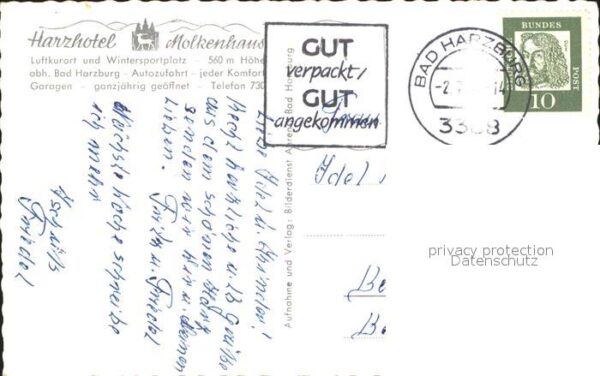 Harzhotel Molkenhaus
Luftkurort und Wintersportplatz - 560 m Höhe
obh. Bad Harzburg - Autozufahrt - jeder Komfort
Garagen - ganzjährig geöffnet - Telefon 730
GUT
verpackt/
GUT
angekommen
BAD HARZBURG
-2.
3388
BUNDES
POST
10
Aufnahme und Verlag: Bilderdienst Bad Harzburg
Liebe Idel u.
Recht herzliche u. lb Grüße
aus dem schönen Harz
senden wir Dir u. Deinen
Lieben. u. Friedel
Nächste Woche schreibe
ich mehr
Friedel
Idel
privacy protection
Datenschutz